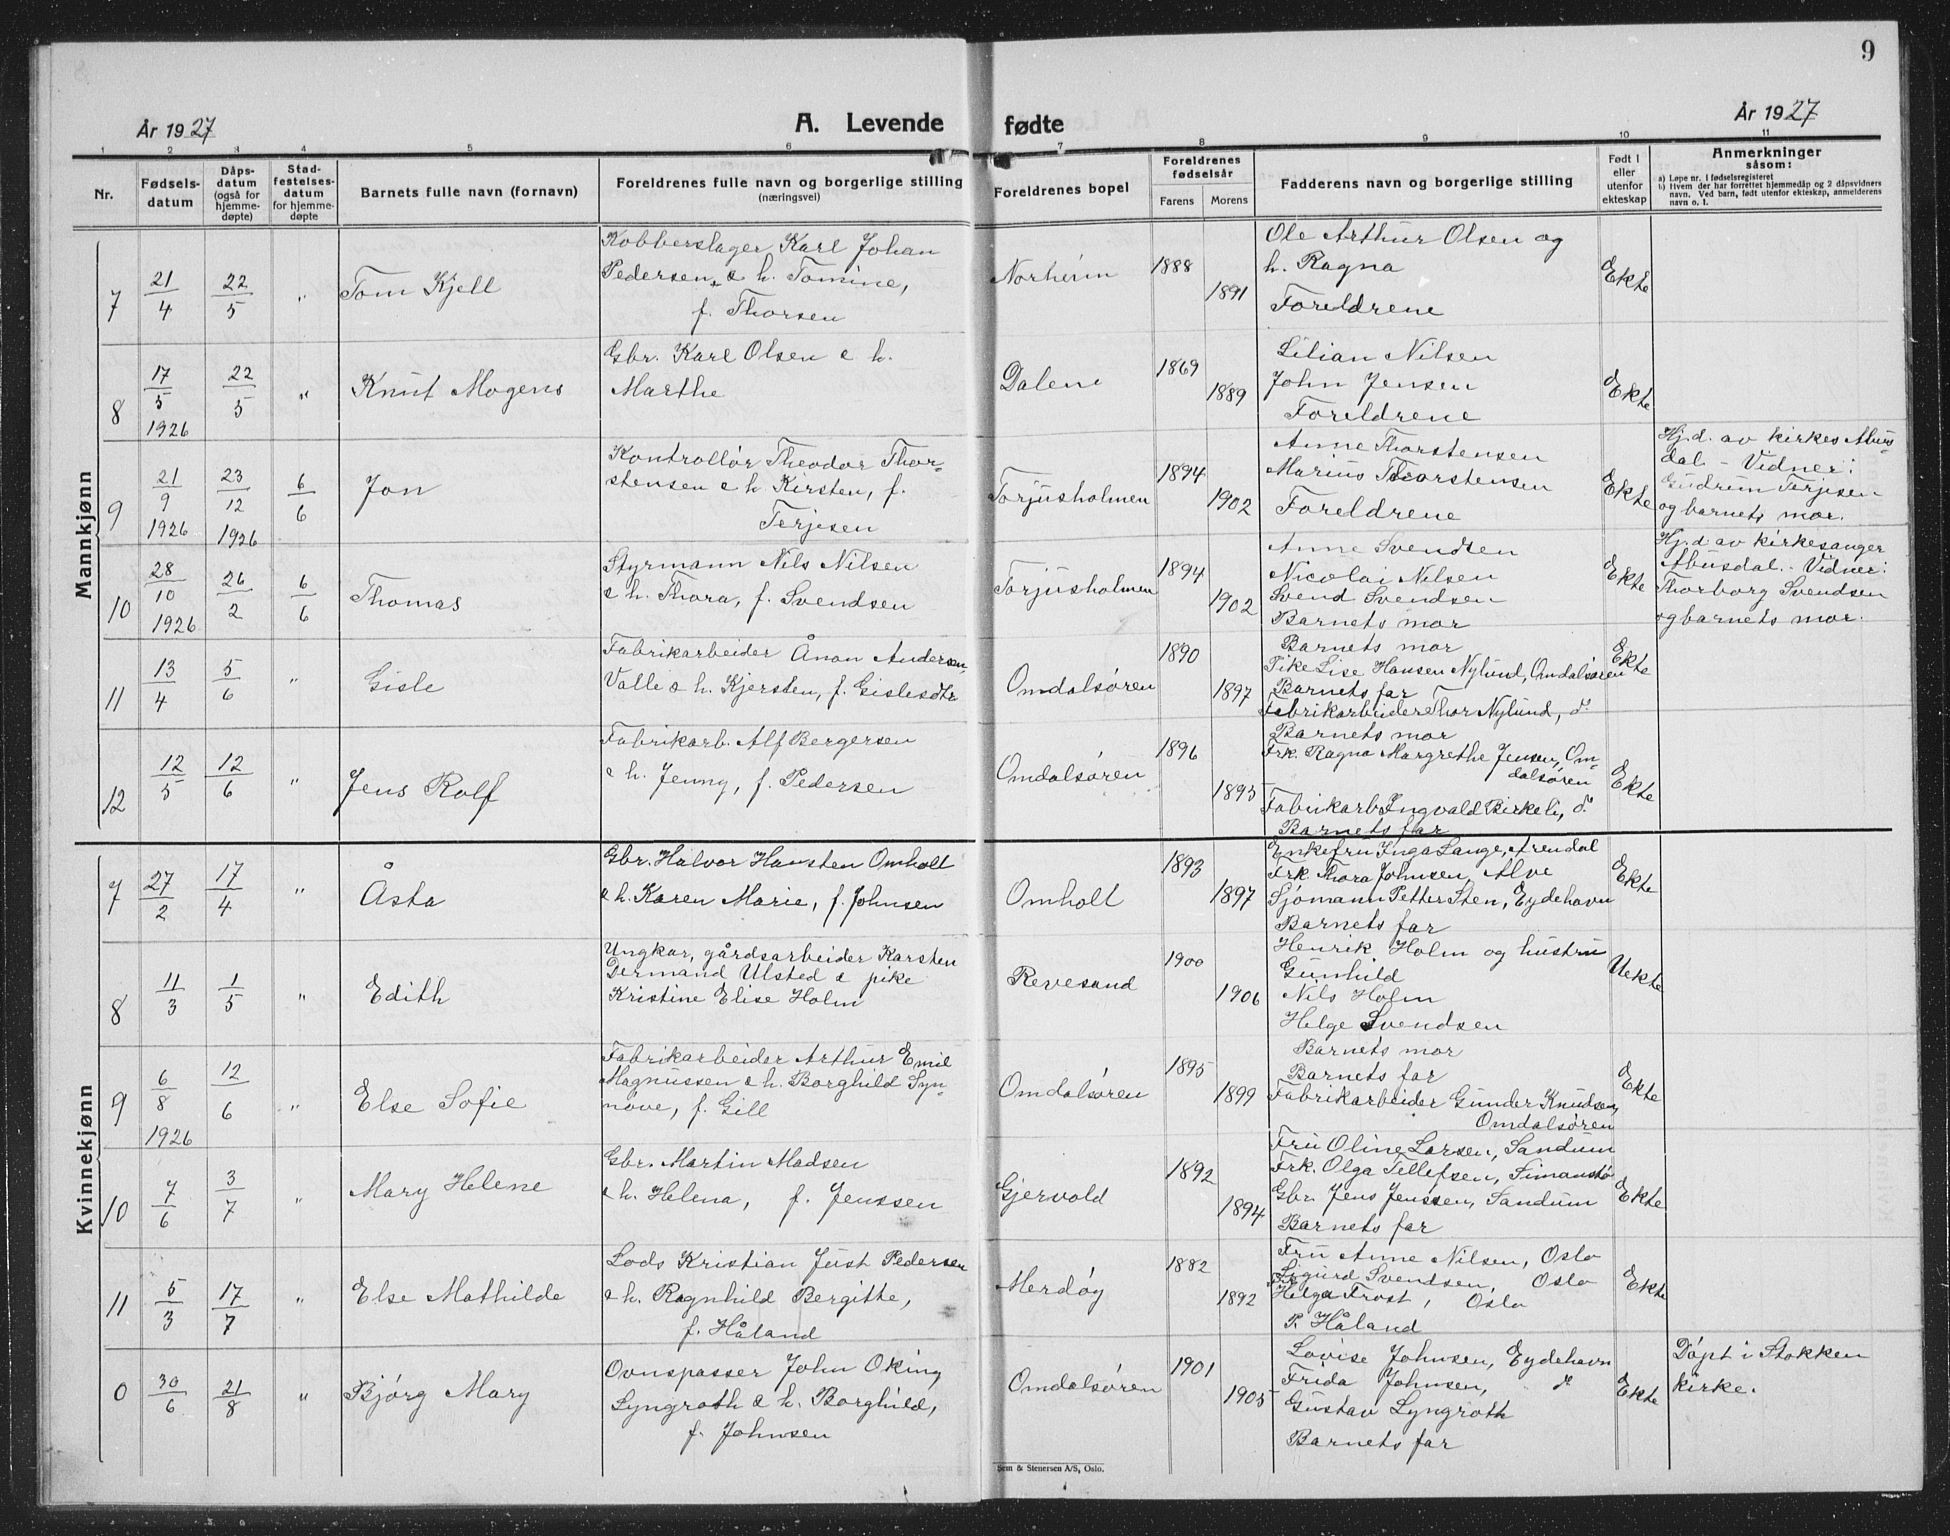 9
År 1927
A. Levende fødte
År 1927
1 2 3 4 5 6 7 8 9 10 11
Nr.
Fødsels-
datum
Dåps-
datum
(også for
hjemme-
døpte)
Stad-
festelses-
datum
for hjemme-
døpte
Barnets fulle navn (fornavn)
Foreldrenes fulle navn og borgerlige stilling
(næringsvei)
Foreldrenes bopel
Foreldrenes
fødselsår
Farens Morens
Fadderens navn og borgerlige stilling
Født i
eller
utenfor
ekteskap
Anmerkninger
såsom:
a) Løpe nr. i fødselsregisteret
b) Hvem der har forrettet hjemmedåp og 2 dåpsvidners
navn. Ved barn, født utenfor ekteskap, anmelderens
navn o. l.
Mannkjønn
7
21/4
22/5
"
Tom Kjell
Kobberslager Karl Johan
Pedersen & h. Tomine,
f. Thorsen
Norheim
1888
1891
Ole Arthur Olsen og
h. Ragna
Foreldrene
Ekte
8
17/5
1926
22/5
"
Knut Mogens
Gbr. Karl Olsen & h.
Marthe
Dalene
1869
1889
Lilian Nilsen
John Jensen
Foreldrene
Ekte
9
21/9
1926
23/12
1926
6/6
Jon
Kontrollør Theodor Thor-
stensen & h. Kirsten, f.
Terjesen
Torjusholmen
1894
1902
Anne Thorstensen
Marius Thorstensen
Foreldrene
Ekte
Hj.d. av kirkes. Abus-
dal. - Vidner:
Gudrun Terjesen
og barnets mor.
10
28/10
1926
26/2
6/6
Thomas
Styrmann Nils Nilsen
& h. Thora, f. Svendsen
Torjusholmen
1894
1902
Anne Svendsen
Nicolai Nilsen
Svend Svendsen
Barnets mor
Ekte
Hj.d. av kirkesanger
Abusdal. - Vidner:
Thorborg Svendsen
og barnets mor.
11
13/4
5/6
"
Gisle
Fabrikarbeider Ånon Andersen
Valle & h. Kjersten, f. Gislesdtr
Omdalsøren
1890
1897
Barnets mor
Pike Lise Hansen Nylund, Omdalsøren
Barnets far
Fabrikarbeider Thor Nylund, do.
Ekte
12
12/5
12/6
"
Jens Rolf
Fabrikarb. Alf Bergersen
& h. Jenny, f. Pedersen
Omdalsøren
1896
1893
Barnets mor
Frk. Ragna Margrethe Jensen, Om-
dalsøren
Fabrikarb. Ingvald Birkeli, do.
Barnets far
Ekte
Kvinnekjønn
7
27/2
17/4
"
Åsta
Gbr. Halvor Hansten Omholt
& h. Karen Marie, f. Johnsen
Omholt
1893
1897
Enkefru Inga Lange, Arendal
Frk. Thora Johnsen, Alve
Sjømann Petter Sten, Eydehavn
Barnets far
Ekte
8
11/3
1/5
"
Edith
Ungkar, gårdsarbeider Karsten
Dermand Ulsted & pike
Kristine Elise Holm
Revesand
1900
1906
Henrik Holm og hustru
Gunhild
Nils Holm
Helge Svendsen
Uekte
9
6/8
1926
12/6
"
Else Sofie
Fabrikarbeider Arthur Emil
Magnussen & h. Borghild Syn-
nøve, f. Gill
Omdalsøren
1895
1899
Barnets mor
Barnets far
Fabrikarbeider Gunder Knudsen,
Omdalsøren
Ekte
10
7/6
3/7
"
Mary Helene
Gbr. Martin Madsen
& h. Helena, f. Jenssen
Gjervold
1892
1894
Fru Oline Larsen, Sandum
Frk. Olga Tellefsen, Simanstø
Gbr. Jens Jenssen, Sandum
Barnets far
Ekte
11
5/3
17/7
"
Else Mathilde
Lods Kristian Just Pedersen
& h. Ragnhild Bergitte,
f. Håland
Merdøy
1882
1892
Fru Anne Nilsen, Oslo
Sigurd Svendsen, Oslo
Helga Frost, Oslo
P. Håland
Ekte
0
30/6
21/8
"
Bjørg Mary
Ovnspasser John Oking
Lyngroth & h. Borghild,
f. Johnsen
Omdalsøren
1901
1905
Lovise Johnsen, Eydehavn
Frida Johnsen, do.
Gustav Lyngroth
Barnets far
Ekte
Døpt i Stokken
kirke.
Sem & Stenersen A/S, Oslo.